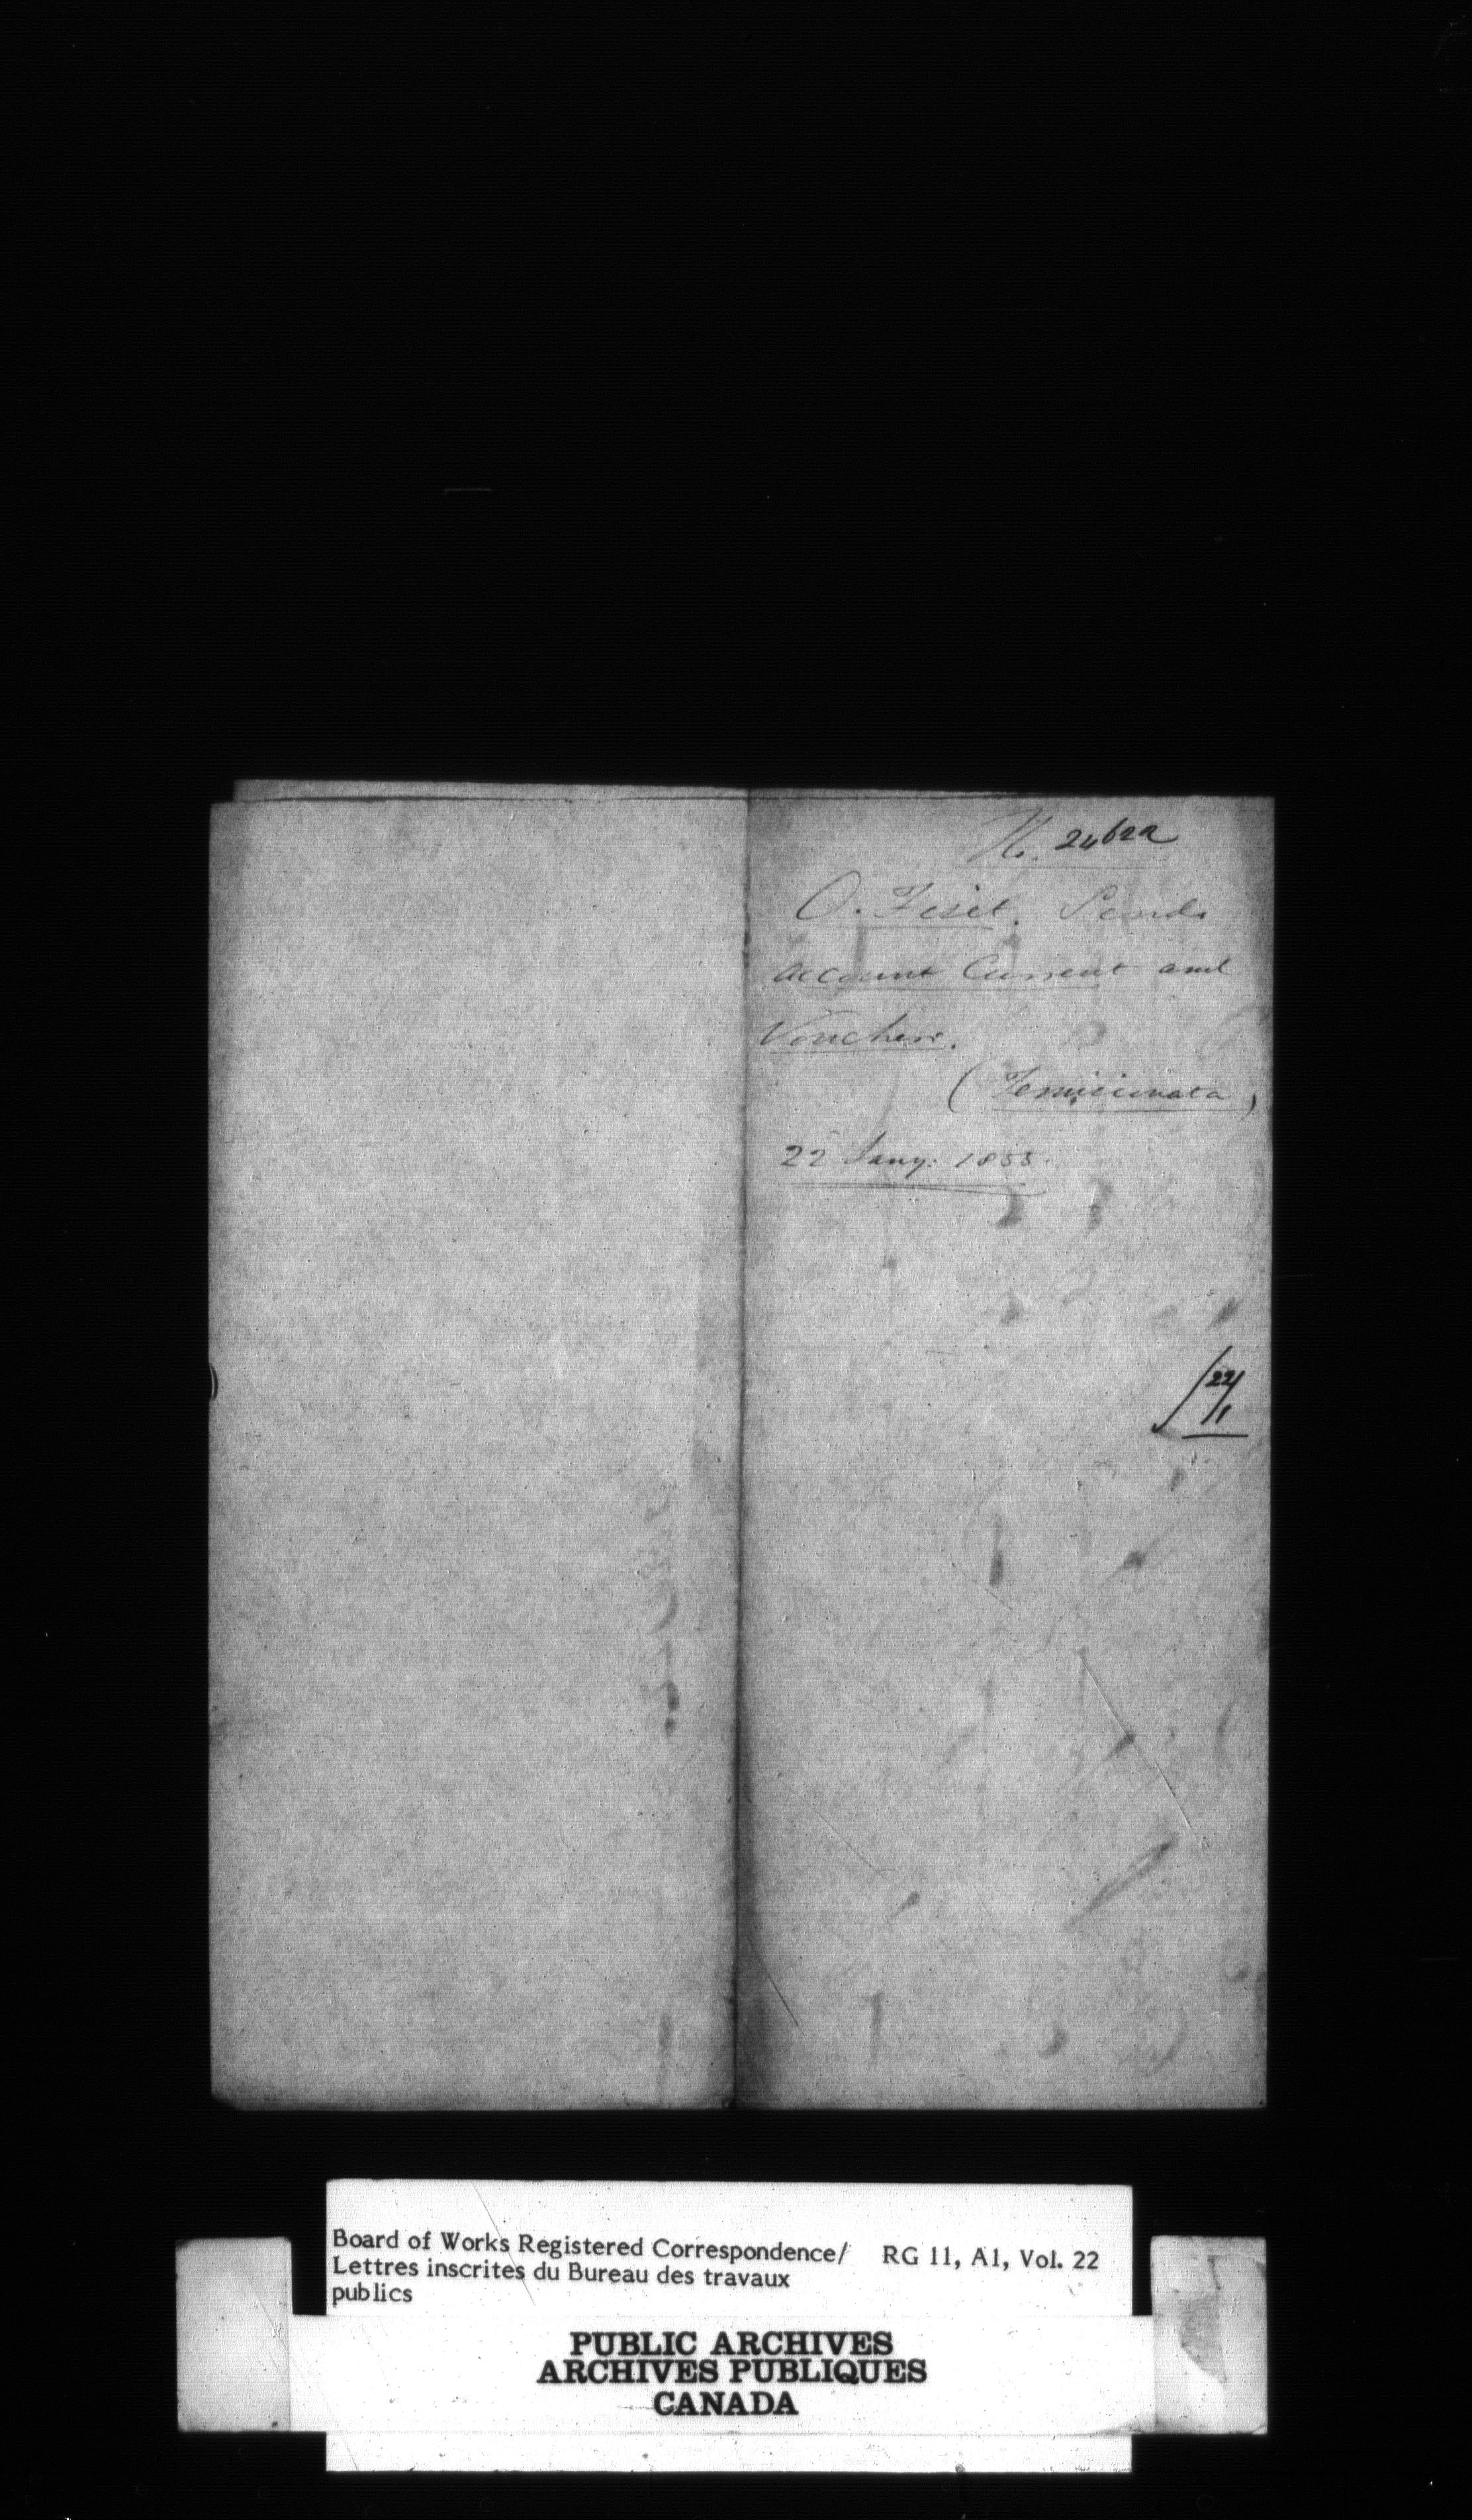 No. 24622
O. Fiset. Sends
account Current and
Vouchers.
(Temiscouata)
22 Jany: 1855.
22/1
Board of Works Registered Correspondence/ RG 11, A1, Vol. 22
Lettres inscrites du Bureau des travaux
publics
PUBLIC ARCHIVES
ARCHIVES PUBLIQUES
CANADA